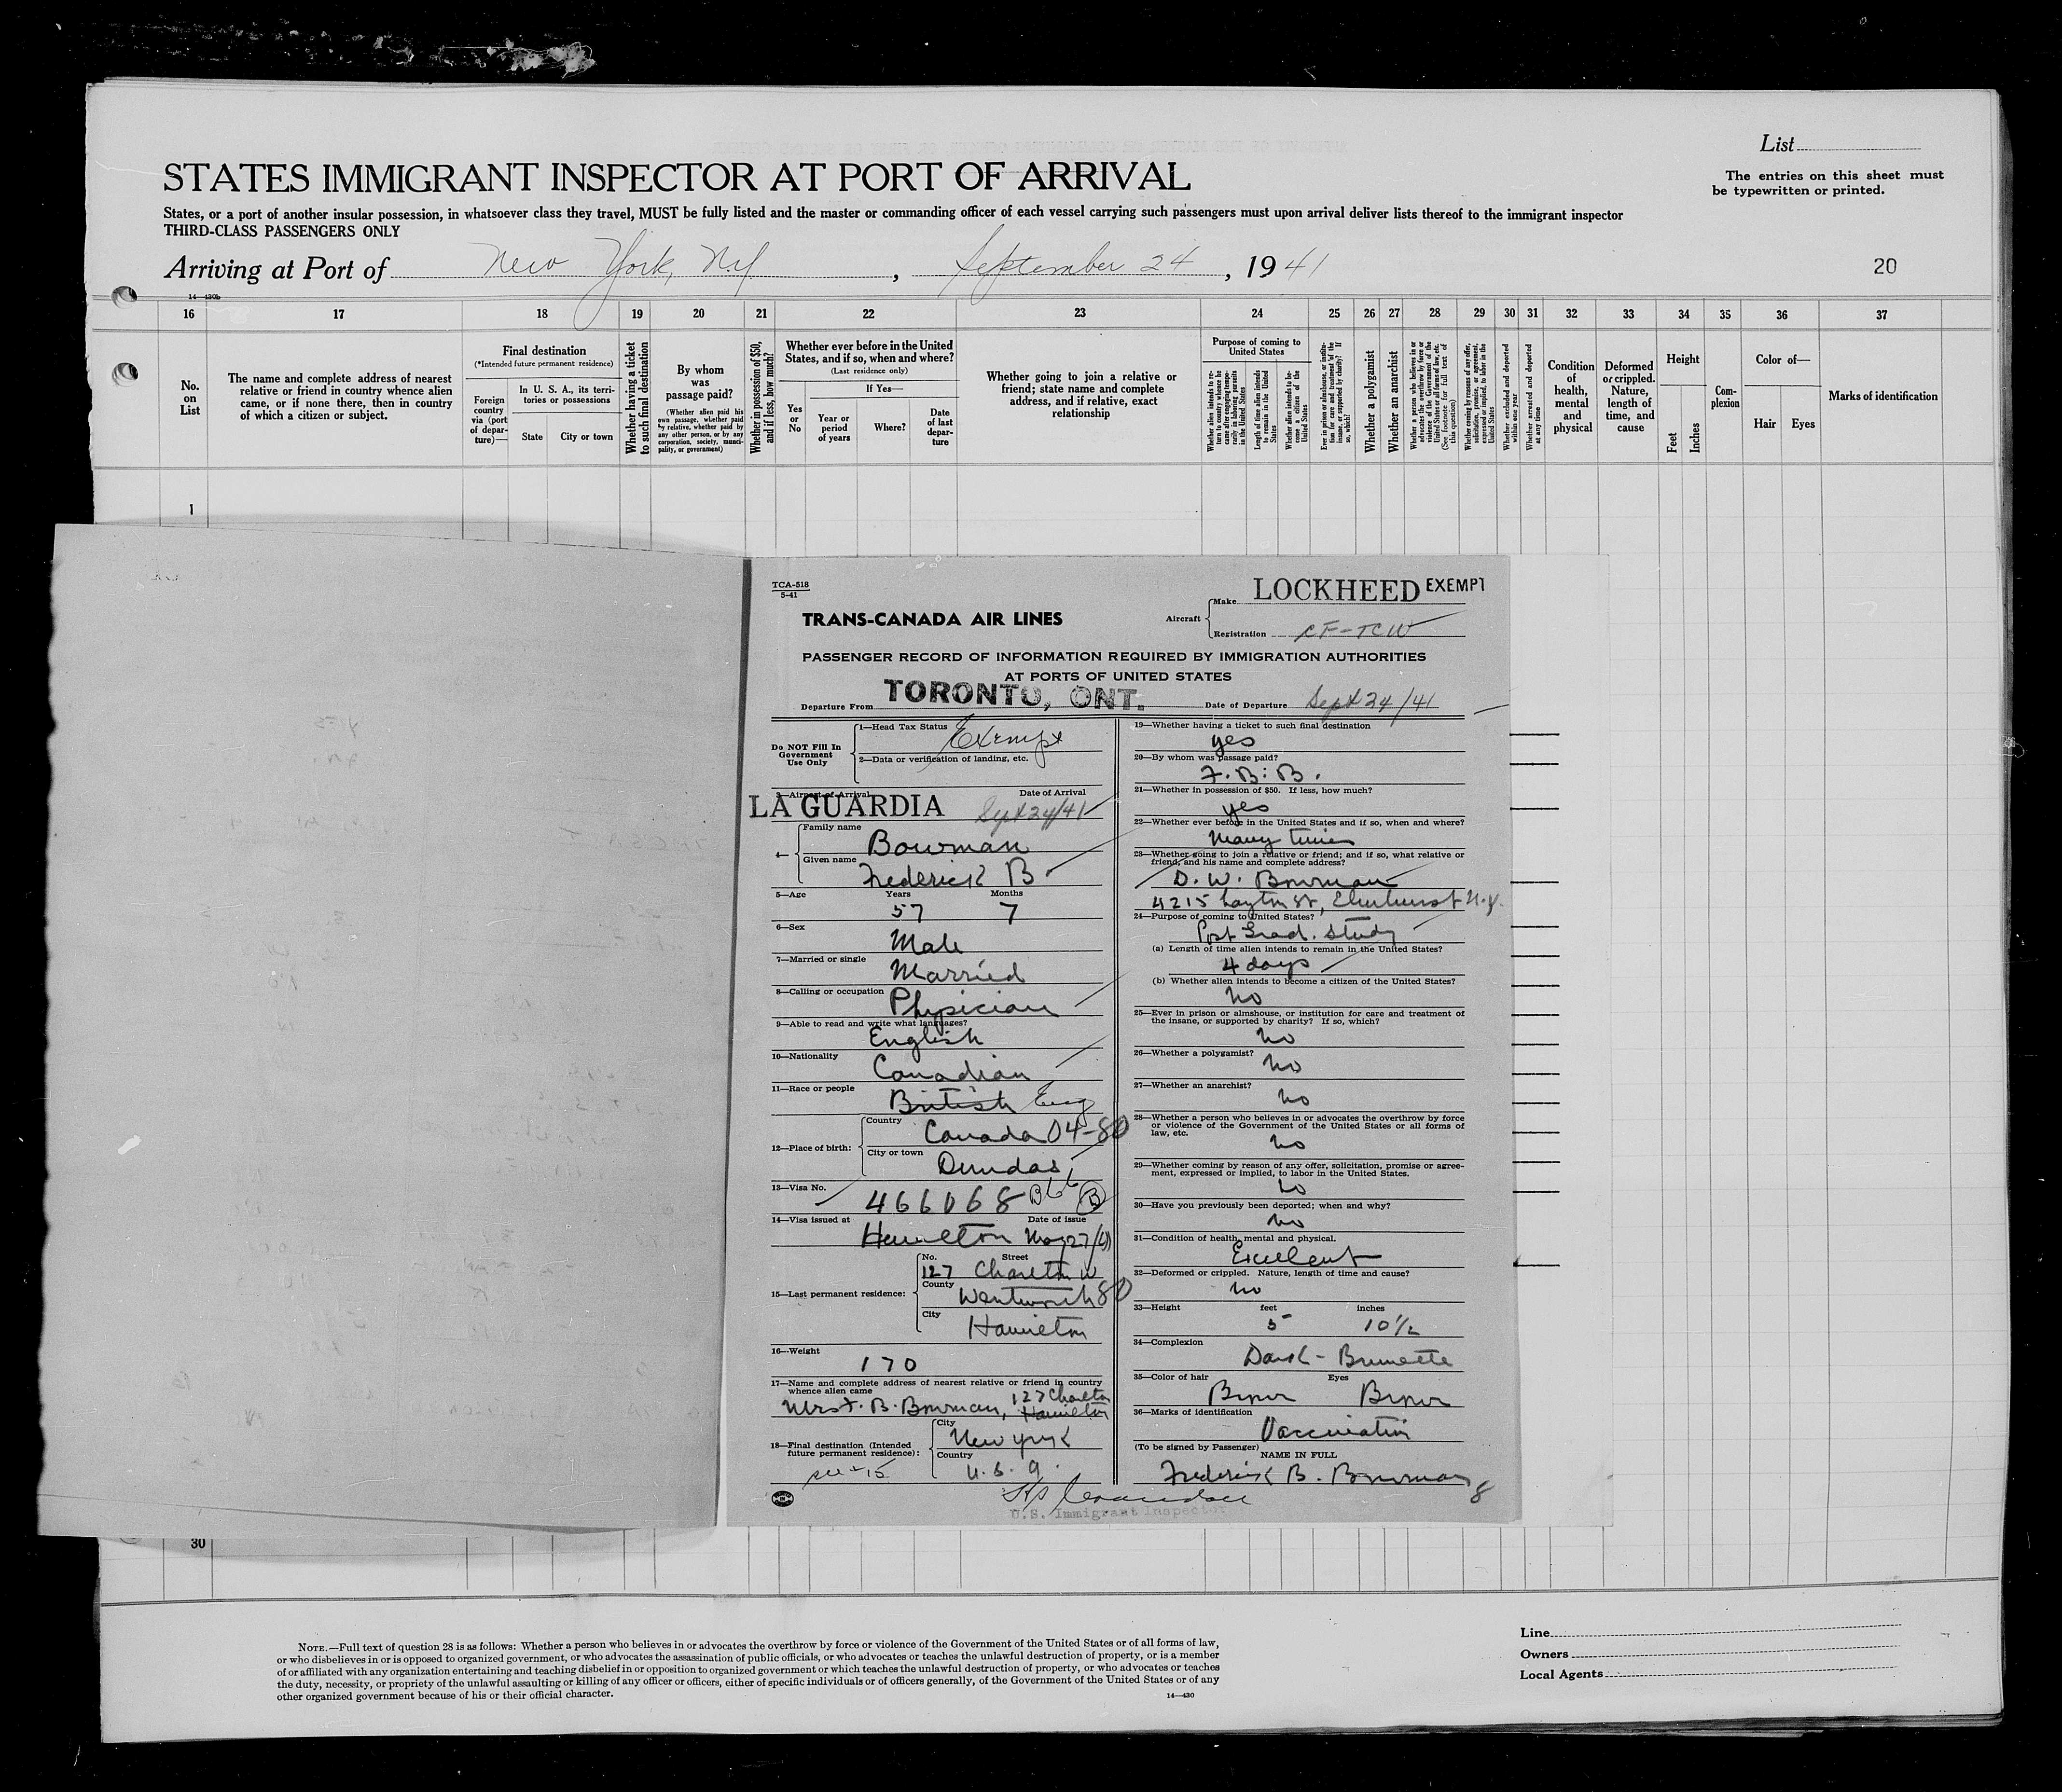 List
STATES IMMIGRANT INSPECTOR AT PORT OF ARRIVAL
The entries on this sheet must
be typewritten or printed.
States, or a port of another insular possession, in whatsoever class they travel, MUST be fully listed and the master or commanding officer of each vessel carrying such passengers must upon arrival deliver lists thereof to the immigrant inspector
THIRD-CLASS PASSENGERS ONLY
Arriving at Port of New York, N.Y., September 24, 1941
20
14—430b
16 17 18 19 20 21 22 23 24 25 26 27 28 29 30 31 32 33 34 35 36 37
No.
on
List
The name and complete address of nearest
relative or friend in country whence alien
came, or if none there, then in country
of which a citizen or subject.
Final destination
(*Intended future permanent residence)
Foreign
country
via (port
of depar-
ture)—
In U. S. A., its terri-
tories or possessions
State
City or town
Whether having a ticket
to such final destination
By whom
was
passage paid?
(Whether alien paid his
own passage, whether paid
by relative, whether paid by
any other person, or by any
corporation, society, munici-
pality, or government)
Whether in possession of $50,
and if less, how much?
Whether ever before in the United
States, and if so, when and where?
(Last residence only)
Yes
or
No
If Yes—
Year or
period
of years
Where?
Date
of last
depar-
ture
Whether going to join a relative or
friend; state name and complete
address, and if relative, exact
relationship
Purpose of coming to
United States
Length of time alien intends
to remain in the United
States
Whether alien intends to be-
come a citizen of the
United States
Whether a polygamist
Whether an anarchist
Whether excluded and deported
within one year
Whether arrested and deported
at any time
Condition
of
health,
mental
and
physical
Deformed
or crippled.
Nature,
length of
time, and
cause
Height
Feet
Inches
Com-
plexion
Color of—
Hair
Eyes
Marks of identification
1
TCA-518
5-41
LOCKHEED EXEMPT
TRANS-CANADA AIR LINES
Aircraft
Make
Registration CF-TCW
PASSENGER RECORD OF INFORMATION REQUIRED BY IMMIGRATION AUTHORITIES
AT PORTS OF UNITED STATES
Departure From TORONTO, ONT. Date of Departure Sept 24/41
Do NOT Fill In
Government
Use Only
1—Head Tax Status Exempt
2—Data or verification of landing, etc.
3—Airport of Arrival Date of Arrival
LA GUARDIA Sept 24/41
4—
Family name
Bowman
Given name
Frederick B
5—Age Years Months
57 7
6—Sex
Male
7—Married or single
Married
8—Calling or occupation
Physician
9—Able to read and write what languages?
English
10—Nationality
Canadian
11—Race or people
British Eng
12—Place of birth:
Country
Canada 04-80
City or town
Dundas
13—Visa No.
466068 B66 B
14—Visa issued at Date of issue
Hamilton May 27/41
15—Last permanent residence:
No. Street
127 Charlton W
County
Wentworth 80
City
Hamilton
16—Weight
170
17—Name and complete address of nearest relative or friend in country
whence alien came
127 Charlton
Mrs F. B. Bowman, Hamilton
18—Final destination (Intended
future permanent residence):
see #15
City
New York
Country
U. S. A.
19—Whether having a ticket to such final destination
yes
20—By whom was passage paid?
F. B. B.
21—Whether in possession of $50. If less, how much?
yes
22—Whether ever before in the United States and if so, when and where?
Many times
23—Whether going to join a relative or friend; and if so, what relative or
friend, and his name and complete address?
D. W. Bowman
4215 Layton St, Elmhurst N.Y.
24—Purpose of coming to United States?
Post Grad. Study
(a) Length of time alien intends to remain in the United States?
4 days
(b) Whether alien intends to become a citizen of the United States?
No
25—Ever in prison or almshouse, or institution for care and treatment of
the insane, or supported by charity? If so, which?
No
26—Whether a polygamist?
No
27—Whether an anarchist?
No
28—Whether a person who believes in or advocates the overthrow by force
or violence of the Government of the United States or all forms of
law, etc.
No
29—Whether coming by reason of any offer, solicitation, promise or agree-
ment, expressed or implied, to labor in the United States.
No
30—Have you previously been deported; when and why?
No
31—Condition of health, mental and physical.
Excellent
32—Deformed or crippled. Nature, length of time and cause?
No
33—Height feet inches
5 10½
34—Complexion
Dark - Brunette
35—Color of hair Eyes
Brown Brown
36—Marks of identification
Vaccination
(To be signed by Passenger)
NAME IN FULL
Frederick B. Bowman
8
U.S. Immigrant Inspector
30
NOTE.—Full text of question 28 is as follows: Whether a person who believes in or advocates the overthrow by force or violence of the Government of the United States or of all forms of law,
or who disbelieves in or is opposed to organized government, or who advocates the assassination of public officials, or who advocates or teaches the unlawful destruction of property, or is a member
of or affiliated with any organization entertaining and teaching disbelief in or opposition to organized government or which teaches the unlawful destruction of property, or who advocates or teaches
the duty, necessity, or propriety of the unlawful assaulting or killing of any officer or officers, either of specific individuals or of officers generally, of the Government of the United States or of any
other organized government because of his or their official character.
14—430
Line
Owners
Local Agents